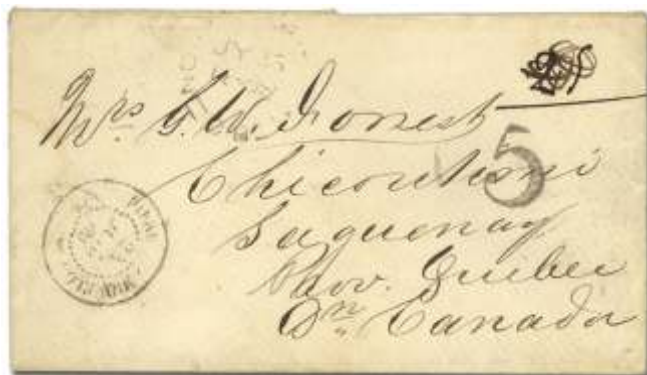 Mrs. G. W. Forrest
Chicoutimi
5
Saguenay
Prov. Quebec
Dn. Canada